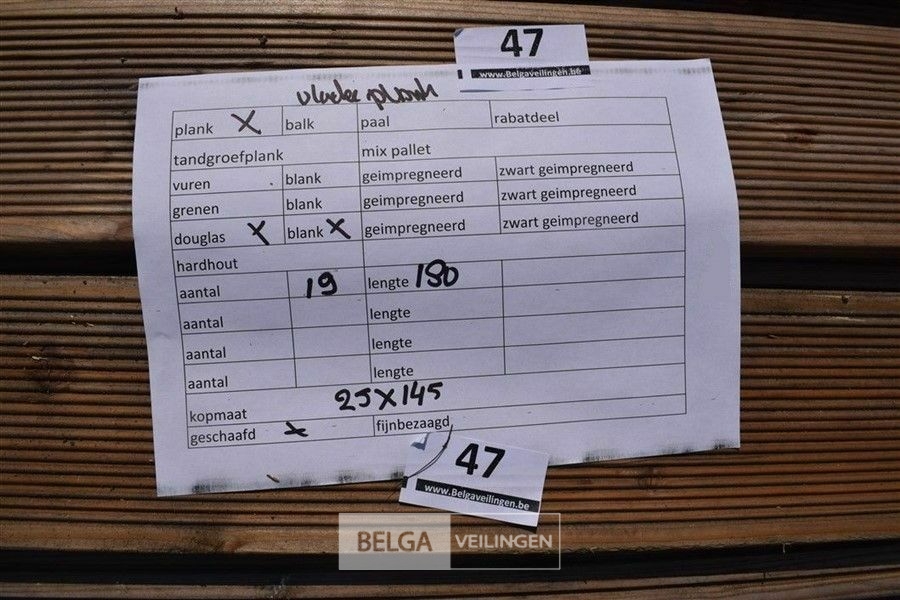 47
www.Belgaveilingen.be
vlonder plank
plank X balk paal rabatdeel
tandgroefplank mix pallet
vuren blank geimpregneerd zwart geimpregneerd
grenen blank geimpregneerd zwart geimpregneerd
douglas X blank X geimpregneerd zwart geimpregneerd
hardhout
aantal 19 lengte 180
aantal lengte
aantal lengte
aantal lengte
kopmaat 25X145
geschaafd X fijnbezaagd
47
www.Belgaveilingen.be
BELGA VEILINGEN